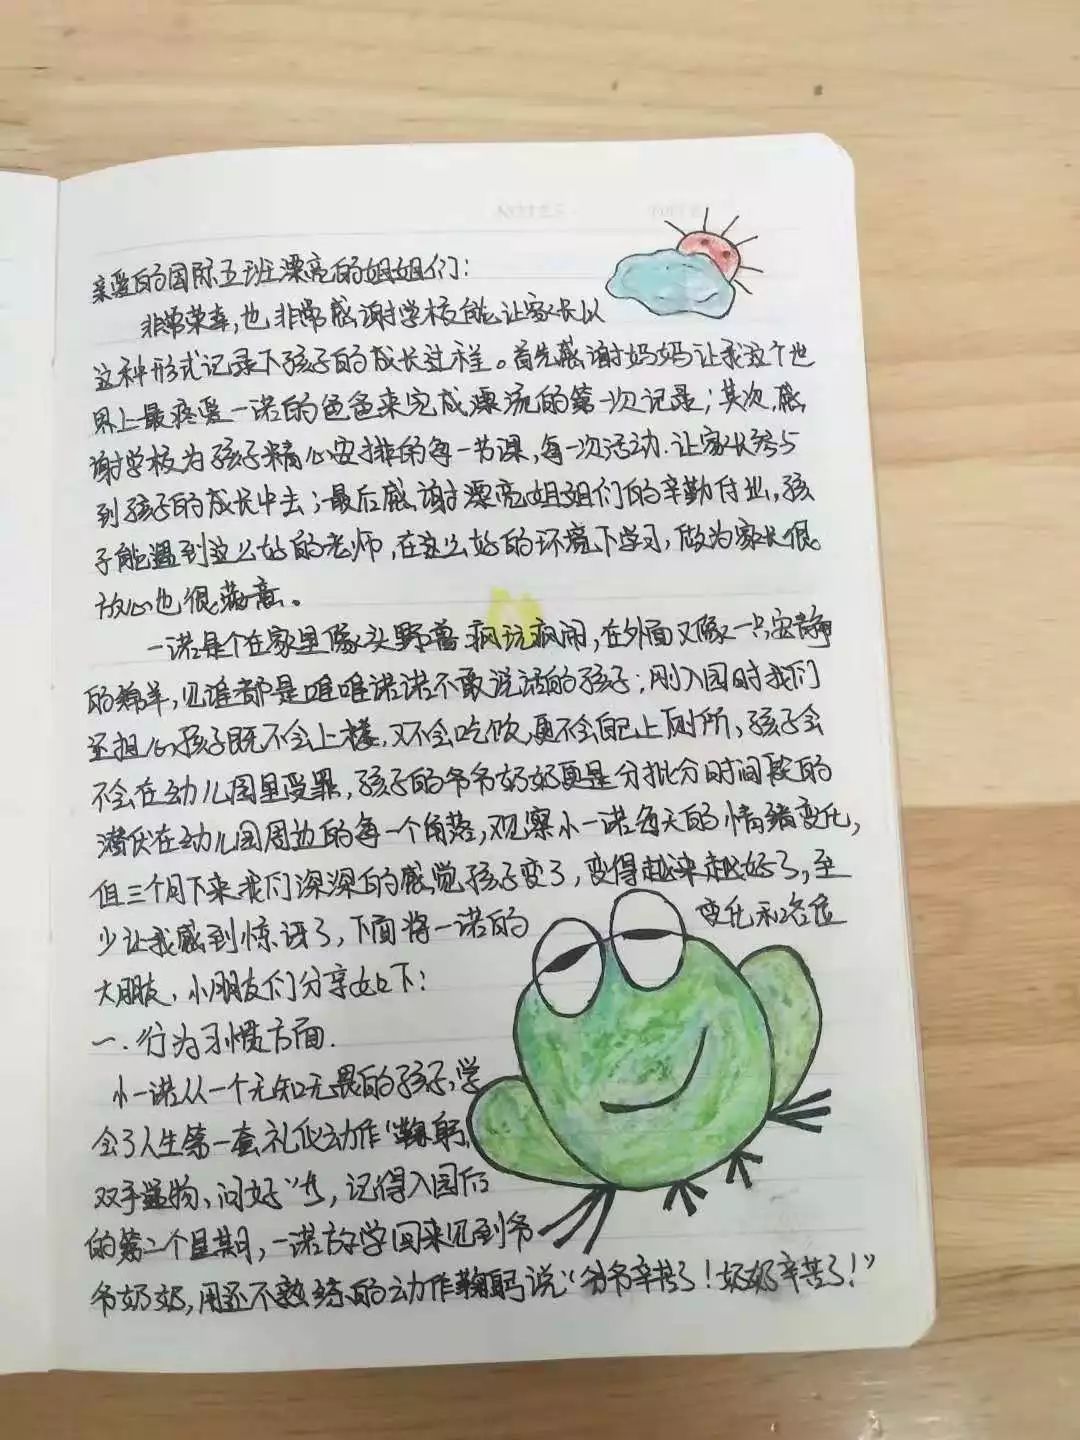 NOTES
亲爱的国际五班漂亮的姐姐们：
非常荣幸,也非常感谢学校能让家长以
这种形式记录下孩子的成长过程。首先感谢妈妈让我这个世
界上最疼爱一诺的爸爸来完成漂流的第一次记录；其次,感
谢学校为孩子精心安排的每一节课,每一次活动.让家长参与
到孩子的成长中去；最后感谢漂亮姐姐们的辛勤付出,孩
子能遇到这么好的老师,在这么好的环境下学习,做为家长很
放心也很满意。
一诺是个在家里像头野兽疯玩疯闹,在外面又像一只安静
的绵羊,见谁都是唯唯诺诺不敢说话的孩子；刚入园时我们
还担心孩子既不会上楼,又不会吃饭,更不会自己上厕所、孩子会
不会在幼儿园里受罪,孩子的爷爷奶奶更是分批分时间段的
潜伏在幼儿园周边的每一个角落,观察小一诺每天的情绪变化,
但三个月下来我们深深的感觉孩子变了,变得越来越好了,至
少让我感到惊讶了,下面将一诺的变化和各位
大朋友、小朋友们分享如下：
一.行为习惯方面.
小一诺从一个无知无畏的孩子,学
会了人生第一套礼仪动作"鞠躬、
双手递物、问好",记得入园后
的第二个星期,一诺放学回来见到爷
爷奶奶,用还不熟练的动作鞠躬说"爷爷辛苦了！奶奶辛苦了！"